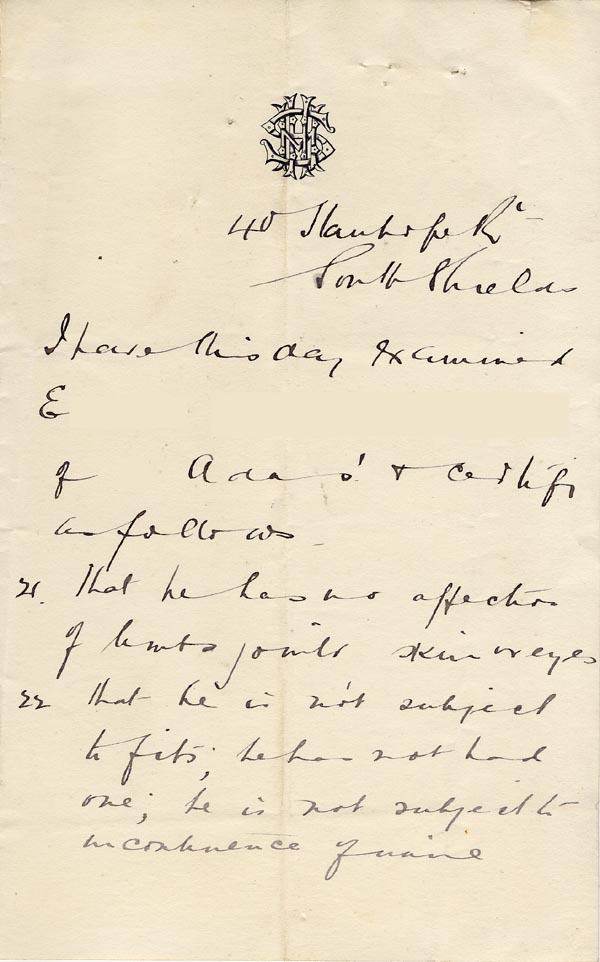 40 Stanhope Rd
South Shields
I have this day examined
E
of & certify
as follows
21. That he has no affection
of limbs joints skin or eyes
22 That he is not subject
to fits; he has not had
one; he is not subject to
incontinence of urine